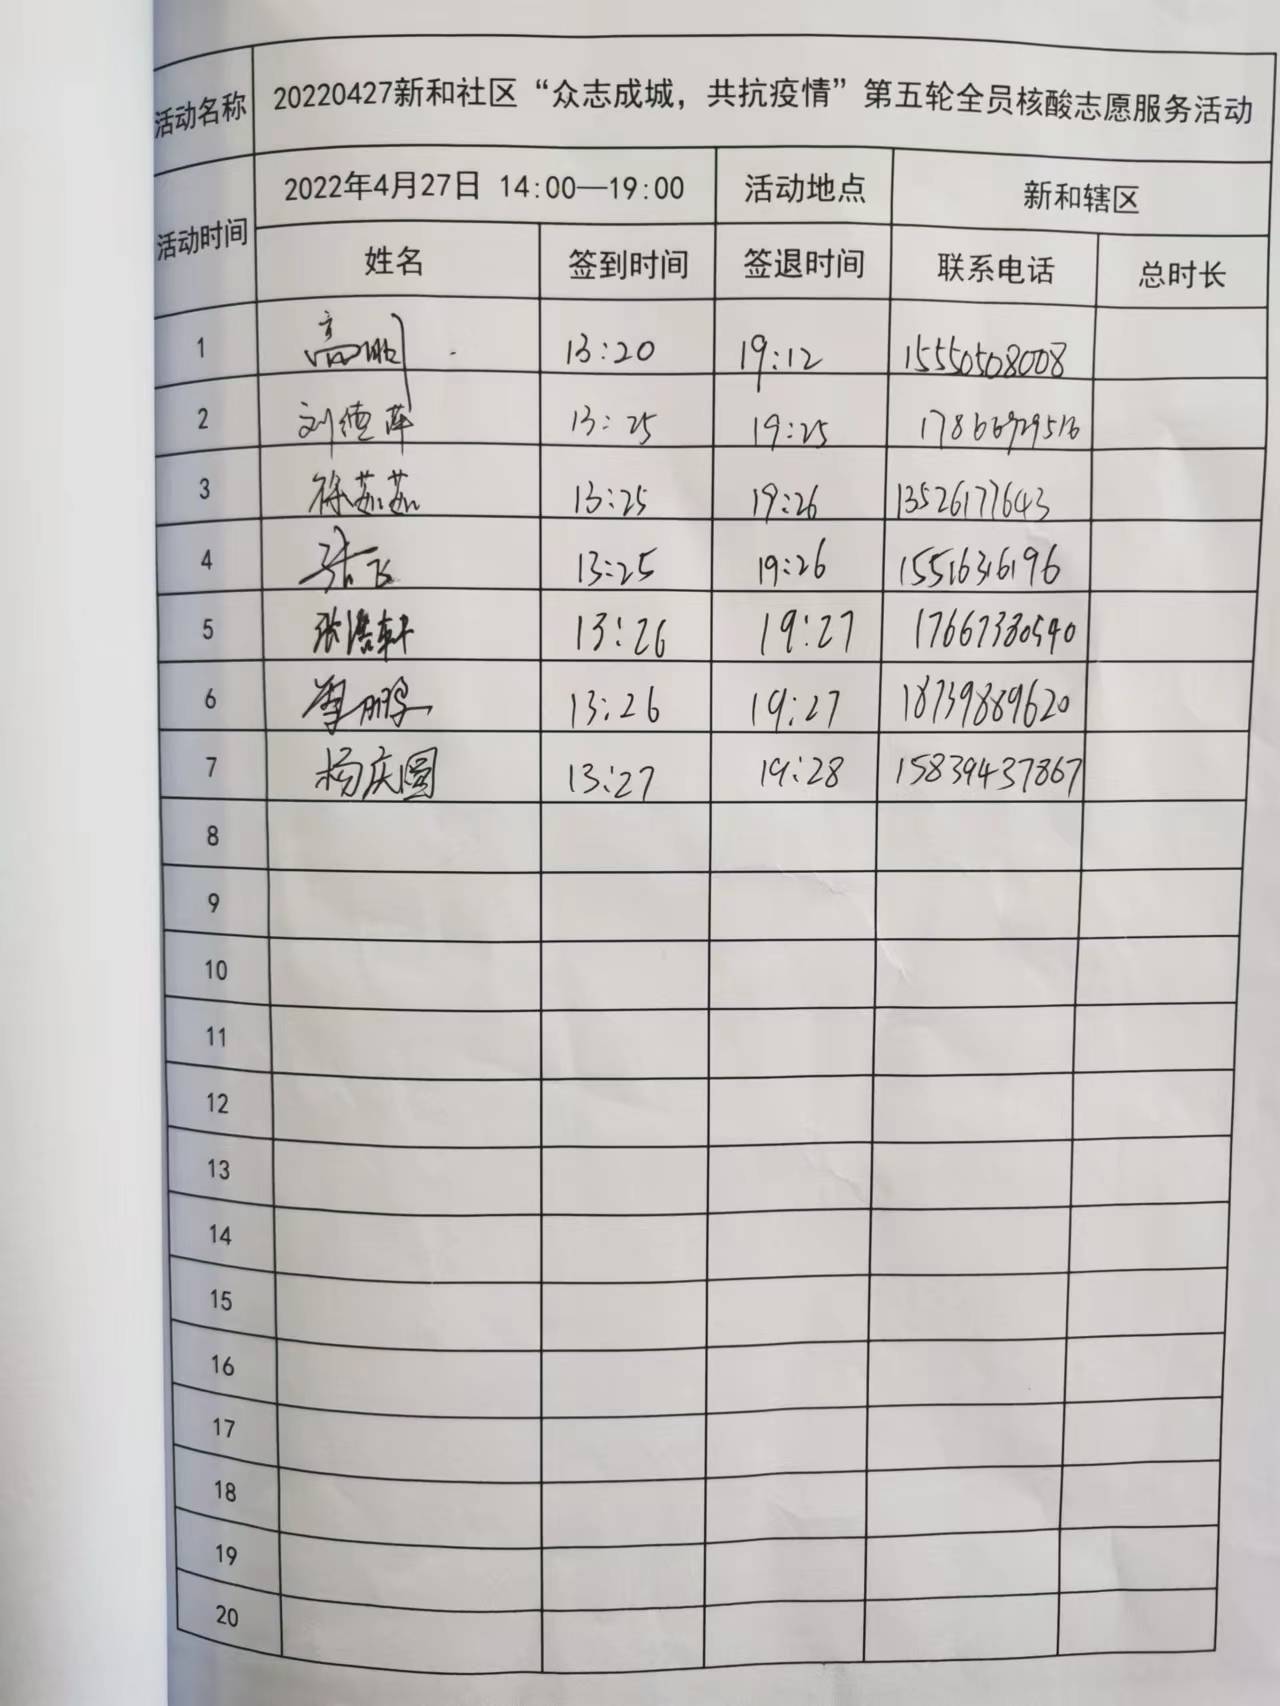 活动名称 20220427新和社区“众志成城，共抗疫情”第五轮全员核酸志愿服务活动
活动时间 2022年4月27日 14:00—19:00 活动地点 新和辖区
姓名 签到时间 签退时间 联系电话 总时长
1 高 13:20 19:12 15550508008
2 刘德萍 13:25 19:25
3 徐茹茹 13:25 19:26 13526177643
4 张飞 13:25 19:26 15516316196
5 张浩轩 13:26 19:27 17667380540
6 李鹏 13:26 19:27 18739889620
7 杨庆圆 13:27 19:28 15839437867
8
9
10
11
12
13
14
15
16
17
18
19
20